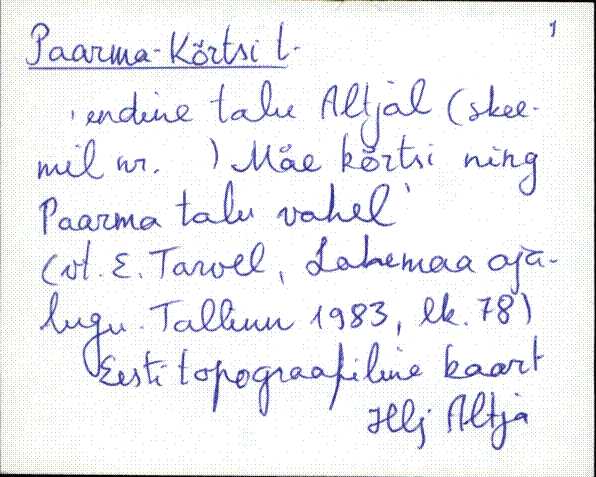 1
Paarma-Kõrtsi t.
'endine talu Altjal (skee-
mil nr.   ) Mäe kõrtsi ning
Paarma talu vahel'
(vt. E. Tarvel, Lahemaa aja-
lugu. Tallinn 1983, lk. 78)
Eesti topograafiline kaart
Hlj Altja